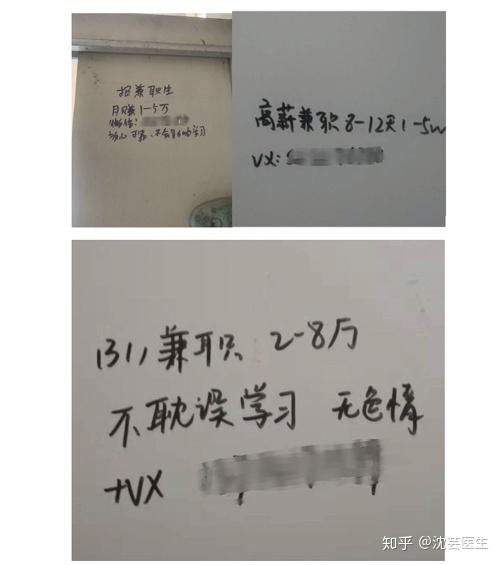 招兼职生
月赚1-5万
微信:
放心可靠,不会影响学习
高薪兼职8-12天1-5w
VX:
兼职 2-8万
不耽误学习 无色情
+VX
知乎 @沈芸医生